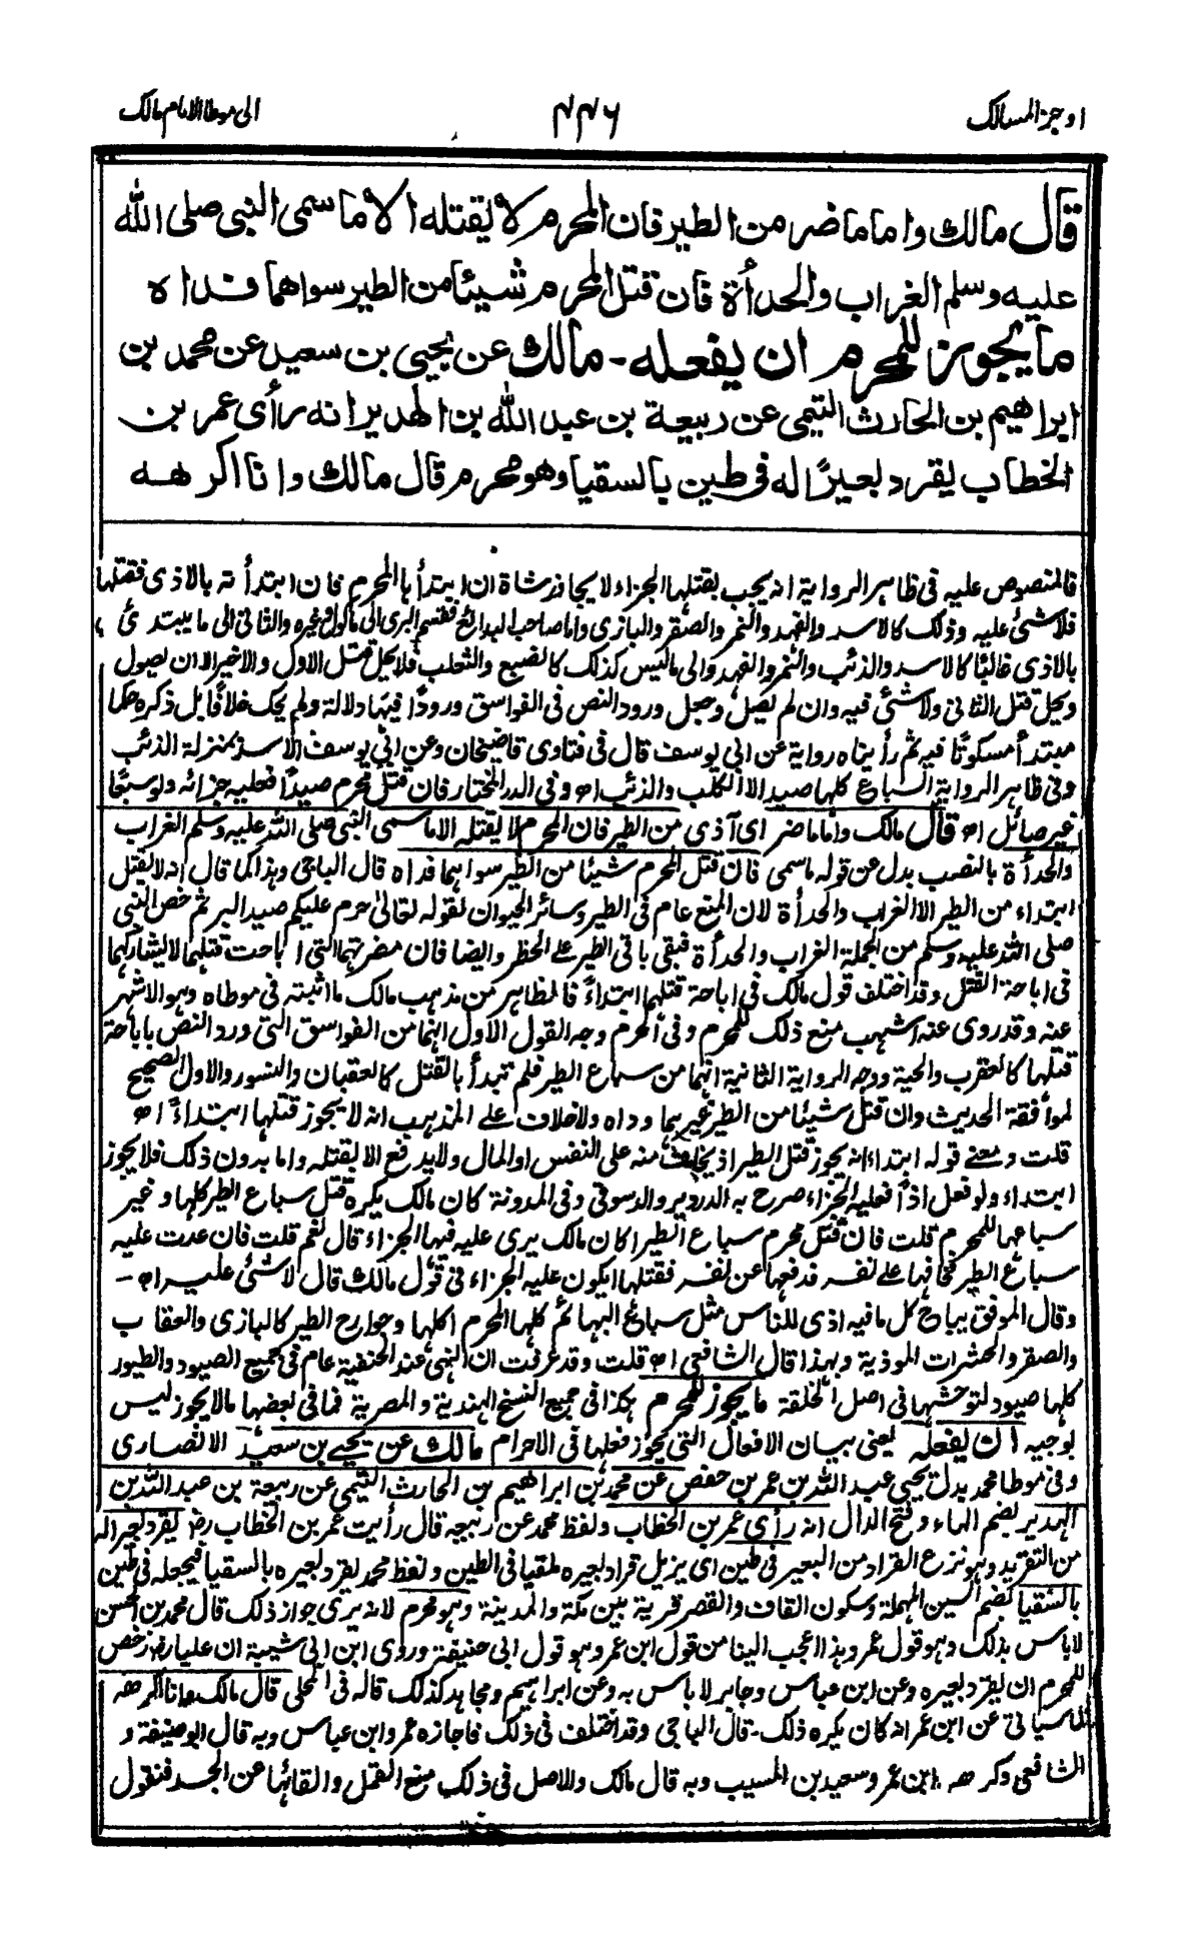 اوجز المسالك
٤٤٦
الى موطا الامام مالك
قال مالك واما ما ضر من الطير فان المحرم لا يقتله الا ما سمى النبى صلى الله
عليه وسلم الغراب والحدأة فان قتل المحرم شيئا من الطير سواهما فداه
ما يجوز للمحرم ان يفعله - مالك عن يحيى بن سعيد عن محمد بن
ابراهيم بن الحارث التيمى عن ربيعة بن عبد الله بن الهدير انه رأى عمر بن
الخطاب يقرد بعيرًا له فى طين بالسقيا وهو محرم قال مالك وانا اكرهه
فالمنصوص عليه فى ظاهر الرواية انه يجب بقتلها الجزاء لا يجاوز شاة ان ابتدأ بالمحرم فان ابتدأته بالاذى فقتلها
فلا شئ عليه وذلك كالاسد والفهد والنمر والصقر والبازى واما صاحب البدائع فقسم البرى الى ماكول وغيره والثانى الى ما يبتدئ
بالاذى غالبًا كالاسد والذئب والنمر والفهد والى ما ليس كذلك كالضبع والثعلب فلا يحل قتل الاول والاخير الا ان يصول
ويحل قتل الثانى ولا شئ فيه وان لم يصل وجعل ورود النص فى الفواسق ورودًا فيها دلالة ولم يحك خلافًا بل ذكره حكما
مبتدأ مسكوتًا فيه ثم رأيناه رواية عن ابى يوسف قال فى فتاوى قاضيخان وعن ابى يوسف الاسد بمنزلة الذئب
وفى ظاهر الرواية السباع كلها صيد الا الكلب والذئب اھ وفى الدر المختار فان قتل محرم صيدًا فعليه جزائه ولو سبعًا
غير صائل اھ قال مالك واما ما ضر اى آذى من الطير فان المحرم لا يقتله الا ما سمى النبى صلى الله عليه وسلم الغراب
والحدأة بالنصب بدل عن قوله ما سمى فان قتل المحرم شيئا من الطير سواهما فداه قال الباجى وهذا كما قال انه لا يقتل
ابتداء من الطير الا الغراب والحدأة لان المنع عام فى الطير وسائر الحيوان لقوله تعالى حرم عليكم صيد البر ثم خص النبى
صلى الله عليه وسلم من الجملة الغراب والحدأة فبقى باقى الطير على الحظر وايضا فان مضرتهما التى اباحت قتلهما لا يشاركهما
فى اباحة القتل وقد اختلف قول مالك فى اباحة قتلهما ابتداءً فالظاهر من مذهب مالك ما اثبته فى موطاه وهو الاشهر
عنه وقد روى عنه اشهب منع ذلك للمحرم وفى الحرم وجه القول الاول انهما من الفواسق التى ورد النص باباحة
قتلها كالعقرب والحية ووجه الرواية الثانية انهما من سباع الطير فلم تبدأ بالقتل كالعقبان والنسور والاول الصحيح
لموافقة الحديث وان قتل شيئا من الطير غيرهما وداه ولا خلاف على المذهب انه لا يجوز قتلها ابتداءً اھ
قلت ومعنى قوله ابتداء انه يجوز قتل الطير اذ يخاف منه على النفس او المال ولا يدفع الا بقتله واما بدون ذلك فلا يجوز
ابتداء ولو فعل اذًا فعليه الجزاء صرح به الدردير والدسوقى وفى المدونة كان مالك يكره قتل سباع الطير كلها وغير
سباعها للمحرم قلت فان قتل محرم سباع الطير اكان مالك يرى عليه فيها الجزاء قال نعم قلت فان عدت عليه
سباع الطير فخافها على نفسه فدفعها عن نفسه فقتلها ايكون عليه الجزاء فى قول مالك قال لا شئ عليه اھ -
وقال الموفق يباح كل ما فيه اذى للناس مثل سباع البهائم كلها المحرم اكلها وجوارح الطير كالبازى والعقاب
والصقر والحشرات الموذية وبهذا قال الشافعى اھ قلت وقد عرفت ان النهى عند الحنفية عام فى جميع الصيود والطيور
كلها صيود لتوحشها فى اصل الخلقة ما يجوز للمحرم هكذا فى جميع النسخ الهندية والمصرية فما فى بعضها مالا يجوز ليس
بوجيه ان يفعله يعنى بيان الافعال التى يجوز فعلها فى الاحرام مالك عن يحيى بن سعيد الانصارى
وفى موطا محمد بدل يحيى عبد الله بن عمر بن حفص عن محمد بن ابراهيم بن الحارث التيمى عن ربيعة بن عبد الله بن
الهدير بضم الهاء وفتح الدال انه رأى عمر بن الخطاب ولفظ محمد عن ربيعة قال رأيت عمر بن الخطاب رض يقرد بعيرا له
من التقريد وهو نزع القراد من البعير فى طين اى يزيل قراد بعيره ملقيا فى الطين ولفظ محمد يقرد بعيره بالسقيا فيجعله فى طين
بالسقيا بضم السين المهملة وسكون القاف والقصر قرية بين مكة والمدينة وهو محرم لانه يرى جواز ذلك قال محمد بن الحسن
لا باس بذلك وهو قول عمر وهذا اعجب الينا من قول ابن عمر وهو قول ابى حنيفة وروى ابن ابى شيبة ان عليا رض رخص
للمحرم ان يقرد بعيره وعن ابن عباس وجابر لا باس به وعن ابراهيم ومجاهد كذلك قاله فى المحلى قال مالك وانا اكرهه
لما سياتى عن ابن عمر انه كان يكره ذلك - قال الباجى وقد اختلف فى ذلك فاجازه عمر وابن عباس وبه قال ابو حنيفة و
الشافعى وكرهه ابن عمر وسعيد بن المسيب وبه قال مالك والاصل فى ذلك منع القمل والقائها عن الجسد فنقول